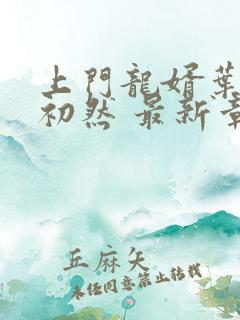 上門龍婿葉
初然 最新章
丘麻矢
未经同意禁止转载